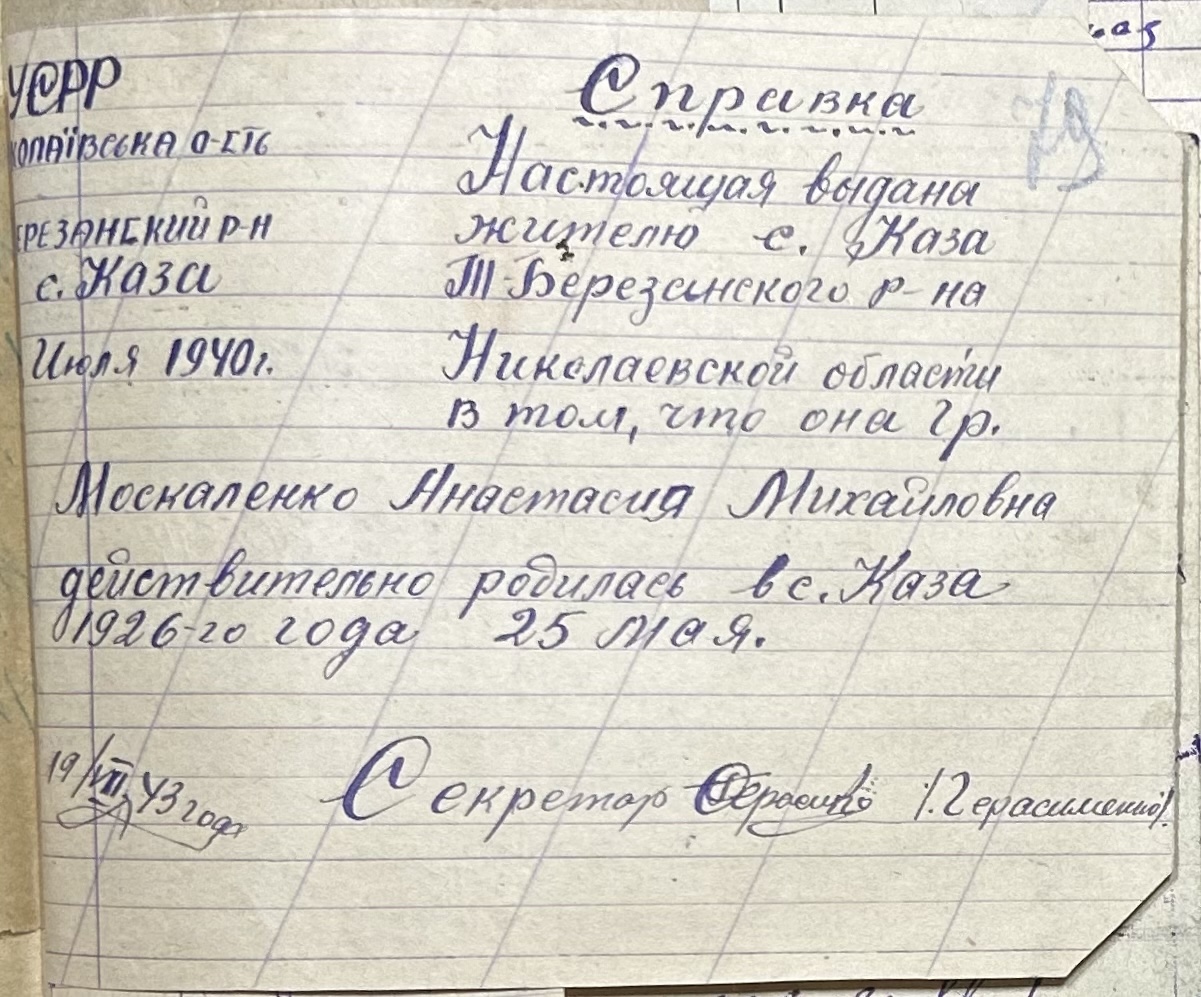 УСРР
Справка
79
КОЛАЇВСЬКА О-СТЬ
Настоящая выданы
жителю с. Каза
ЕРЕЗАНСКИЙ Р-Н
с. Каза
Т-Березанского р-на
Июля 1940г.
Николаевской области
в том, что она гр.
Москаленко Анастасия Михайловна
действительно родилась в с. Каза
1926-го года 25 мая.
19/VII 43 года
Секретар /.Герасименко/.